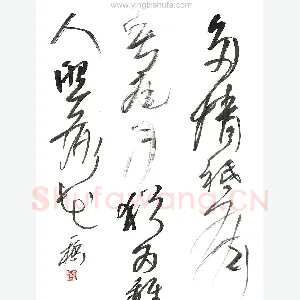 www.yingbishufa.com
多情祇有
春庭月猶为離
人照落花
ShufaWang.CN